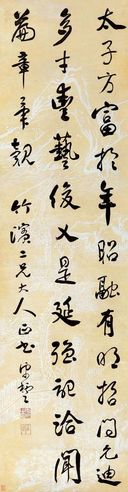 太子方富於年昭融有明招問允迪
多才豊藝俊乂是延強記洽聞
篇章并觀 竹濱二兄大人正書